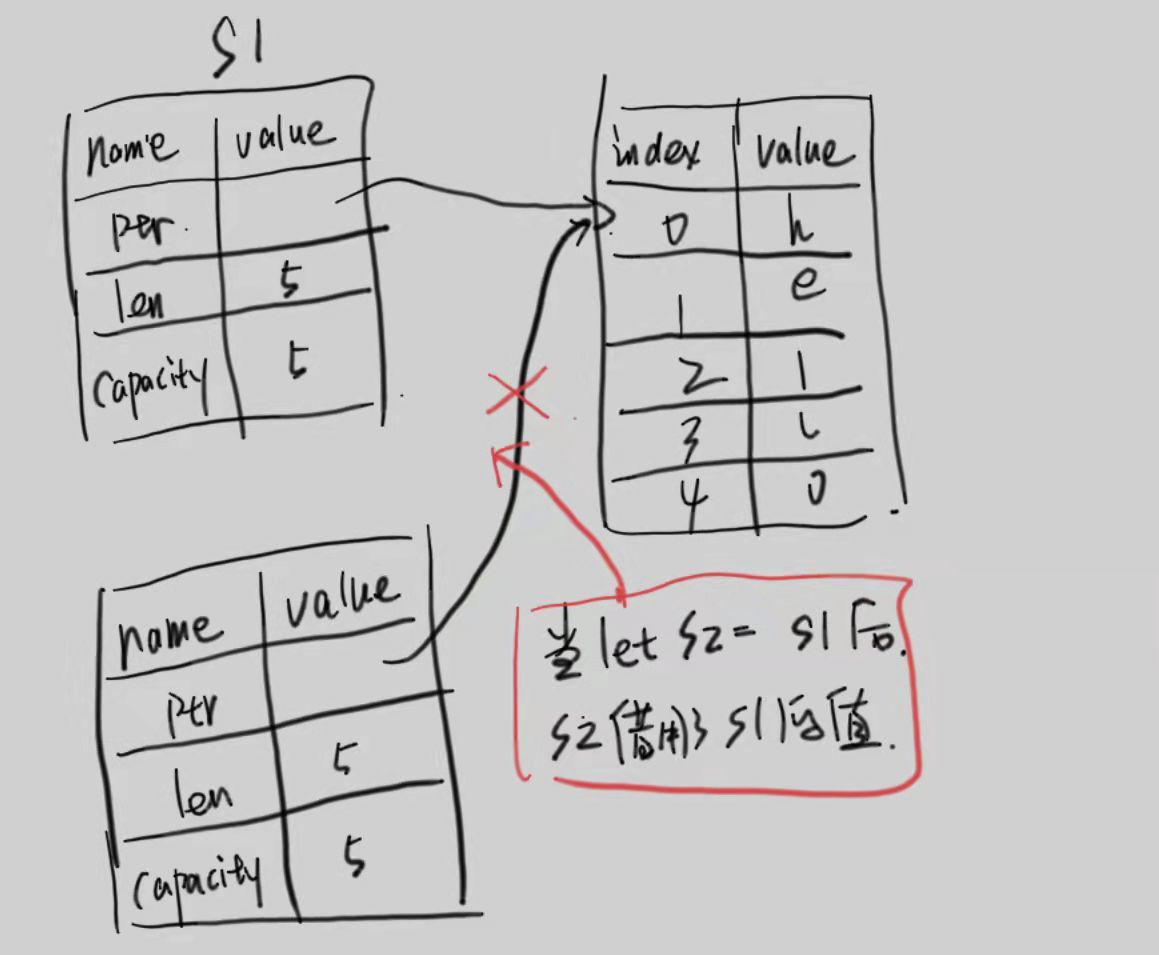 S1
name value
ptr
len 5
capacity 5
index value
0 h
1 e
2 l
3 l
4 o
name value
ptr
len 5
capacity 5
当 let s2 = s1 后.
s2 借用了 s1 的值.